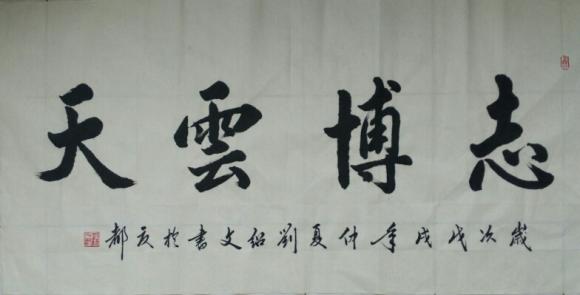 志博雲天
歲次戊戌年仲夏劉紹文書於都